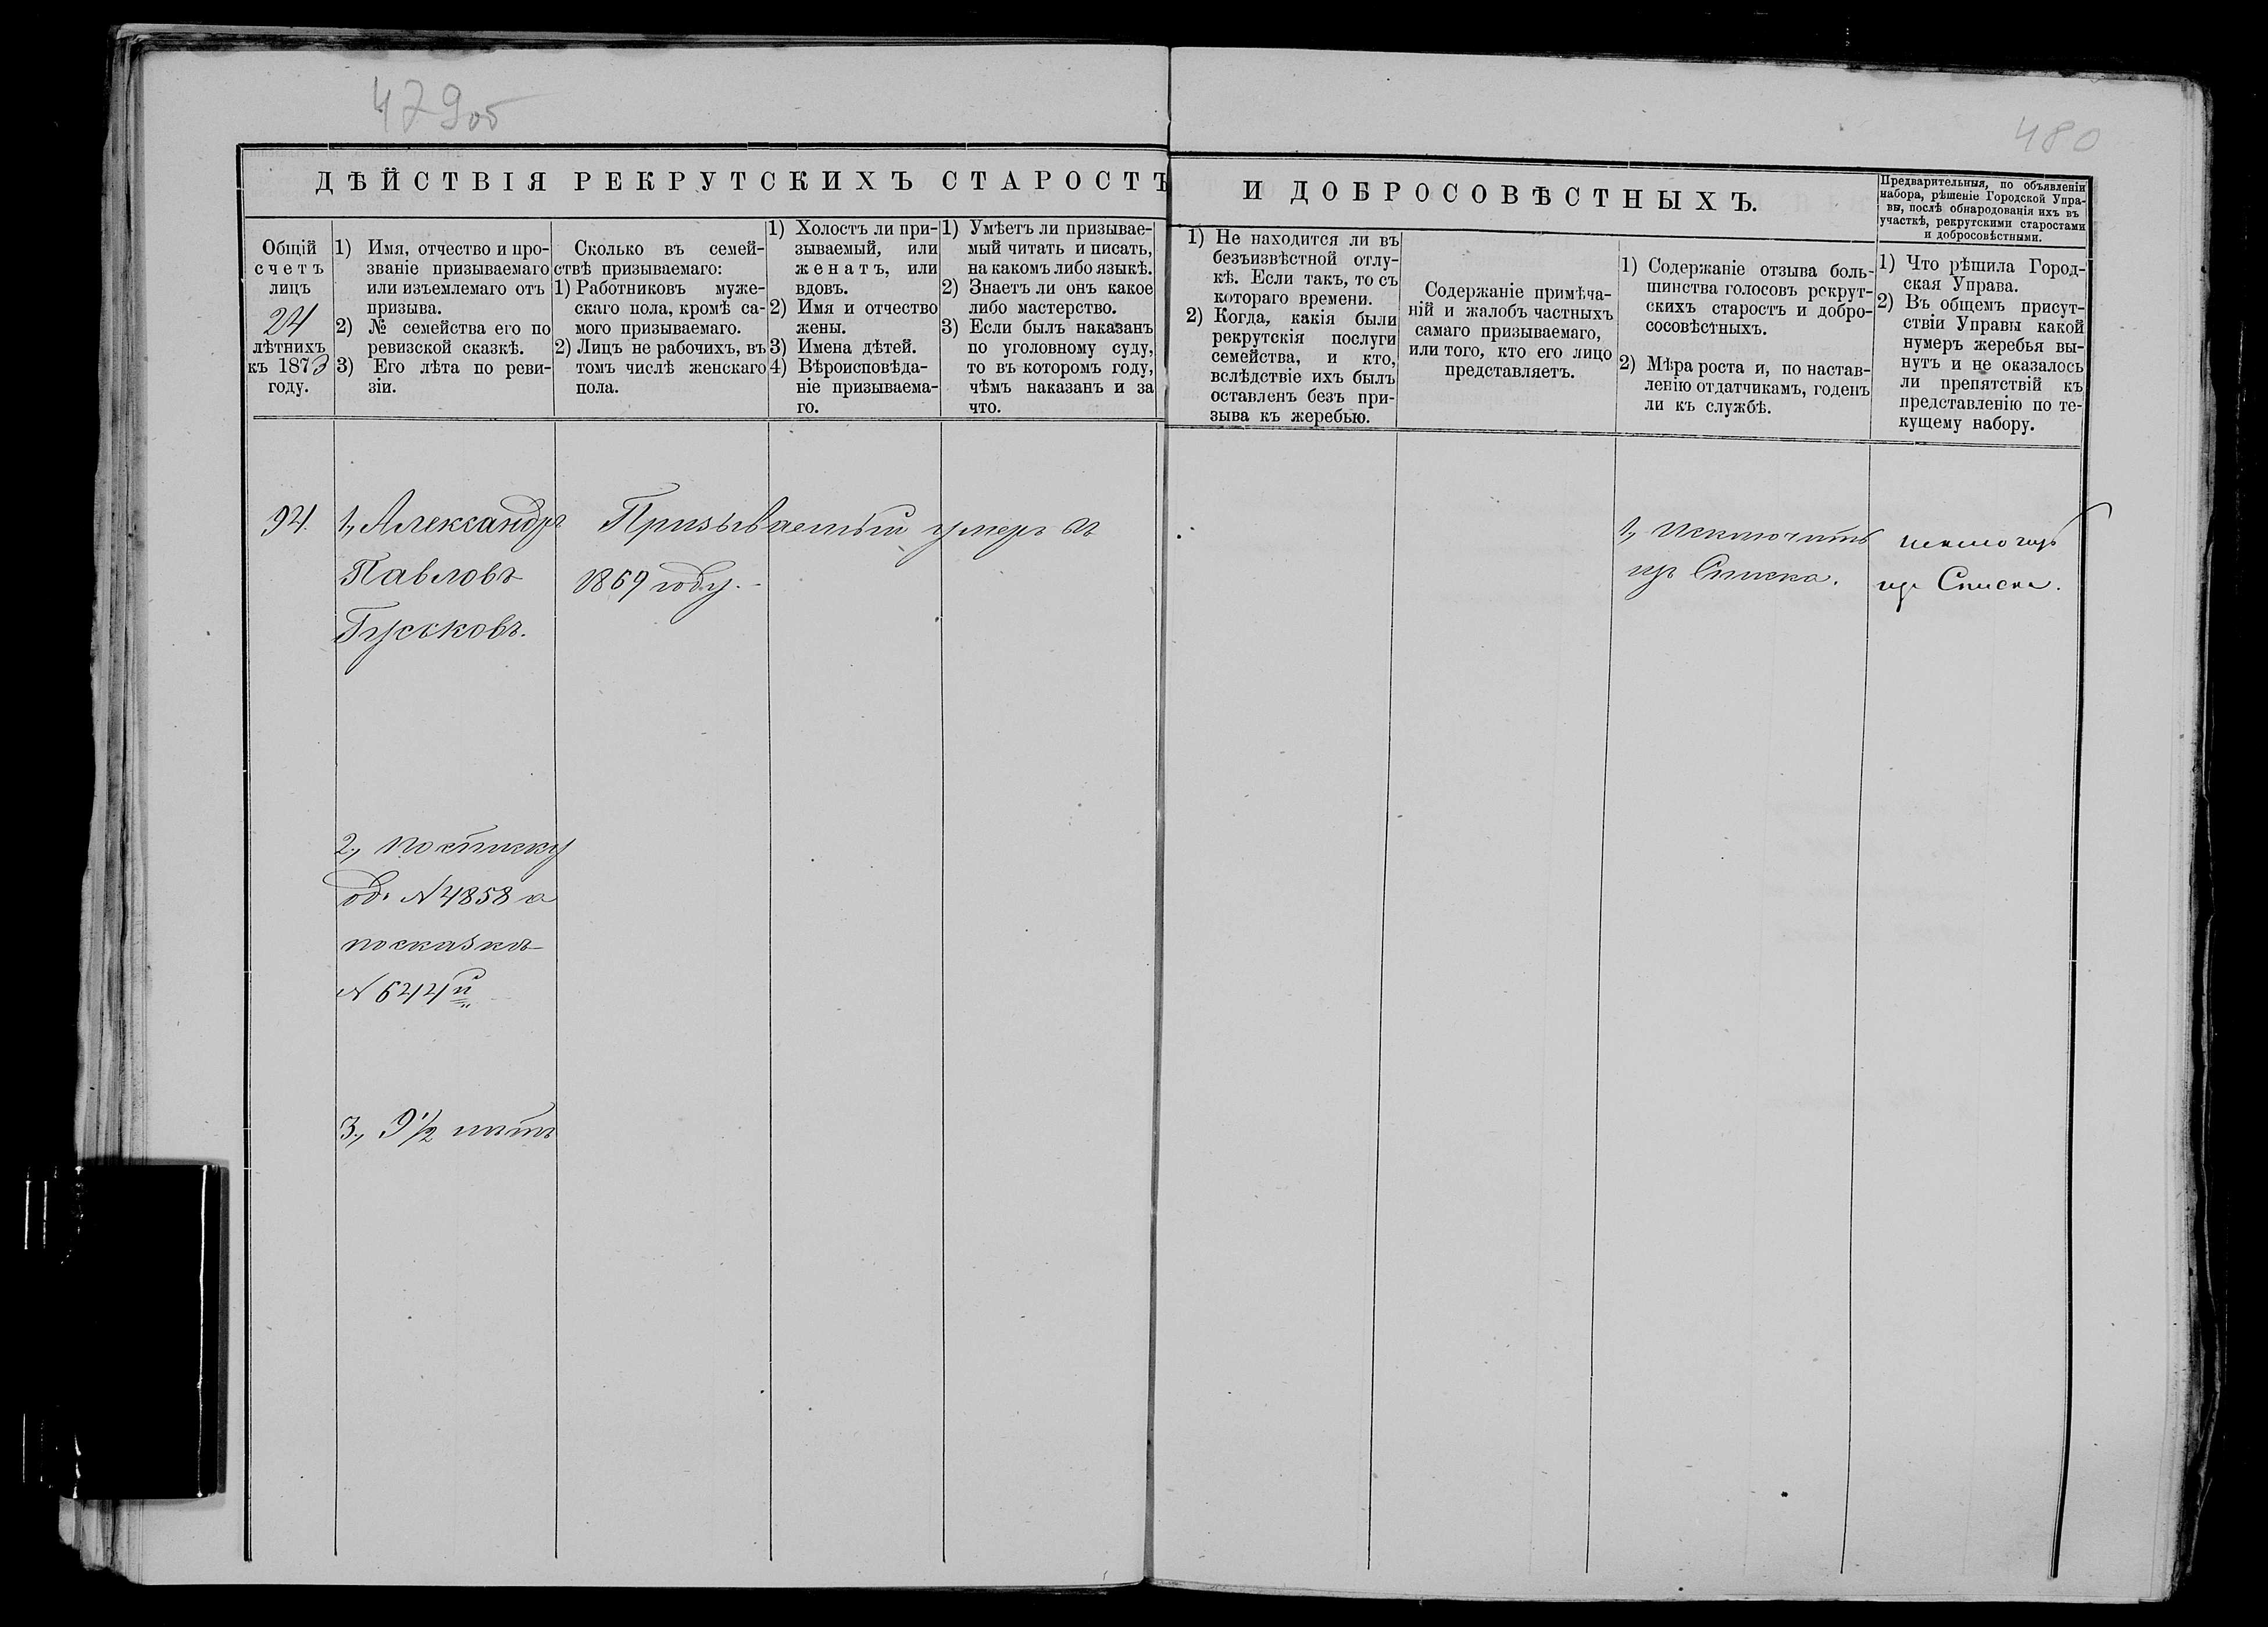 479об
480
ДѢЙСТВІЯ РЕКРУТСКИХЪ СТАРОСТЪ
И ДОБРОСОВѢСТНЫХЪ.
Предварительныя, по объявленіи
набора, рѣшеніе Городской Упра-
вы, послѣ обнародованія ихъ въ
участкѣ, рекрутскими старостами
и добросовѣстными.
Общій
счетъ
лицъ
24
лѣтнихъ
къ 1873
году.
1) Имя, отчество и про-
званіе призываемаго
или изъемлемаго отъ
призыва.
2) № семейства его по
ревизской сказкѣ.
3) Его лѣта по реви-
зіи.
Сколько въ семей-
ствѣ призываемаго:
1) Работниковъ муже-
скаго пола, кромѣ са-
мого призываемаго.
2) Лицъ не рабочихъ, въ
томъ числѣ женскаго
пола.
1) Холостъ ли при-
зываемый, или
женатъ, или
вдовъ.
2) Имя и отчество
жены.
3) Имена дѣтей.
4) Вѣроисповѣда-
ніе призываема-
го.
1) Умѣетъ ли призывае-
мый читать и писать,
на какомъ либо языкѣ.
2) Знаетъ ли онъ какое
либо мастерство.
3) Если былъ наказанъ
по уголовному суду,
то въ которомъ году,
чѣмъ наказанъ и за
что.
1) Не находится ли въ
безъизвѣстной отлу-
кѣ. Если такъ, то съ
котораго времени.
2) Когда, какія были
рекрутскія послуги
семейства, и кто,
вслѣдствіе ихъ былъ
оставленъ безъ при-
зыва къ жеребью.
Содержаніе примѣча-
ній и жалобъ частныхъ
самаго призываемаго,
или того, кто его лицо
представляетъ.
1) Содержаніе отзыва боль-
шинства голосовъ рекрут-
скихъ старостъ и добро-
совѣстныхъ.
2) Мѣра роста и, по настав-
ленію отдатчикамъ, годенъ
ли къ службѣ.
1) Что рѣшила Город-
ская Управа.
2) Въ общемъ присут-
ствіи Управы какой
нумеръ жеребья вы-
нутъ и не оказалось
ли препятствій къ
представленію по те-
кущему набору.
94.
1, Александръ
Павловъ
Гуськовъ.
2, по списку
од. N 4858 а
по сказкѣ
N 644й
3, 9 1/2 лѣтъ
Призываемый умеръ въ
1869 году.
1, Исключить
изъ Списка.
изъ Списка.